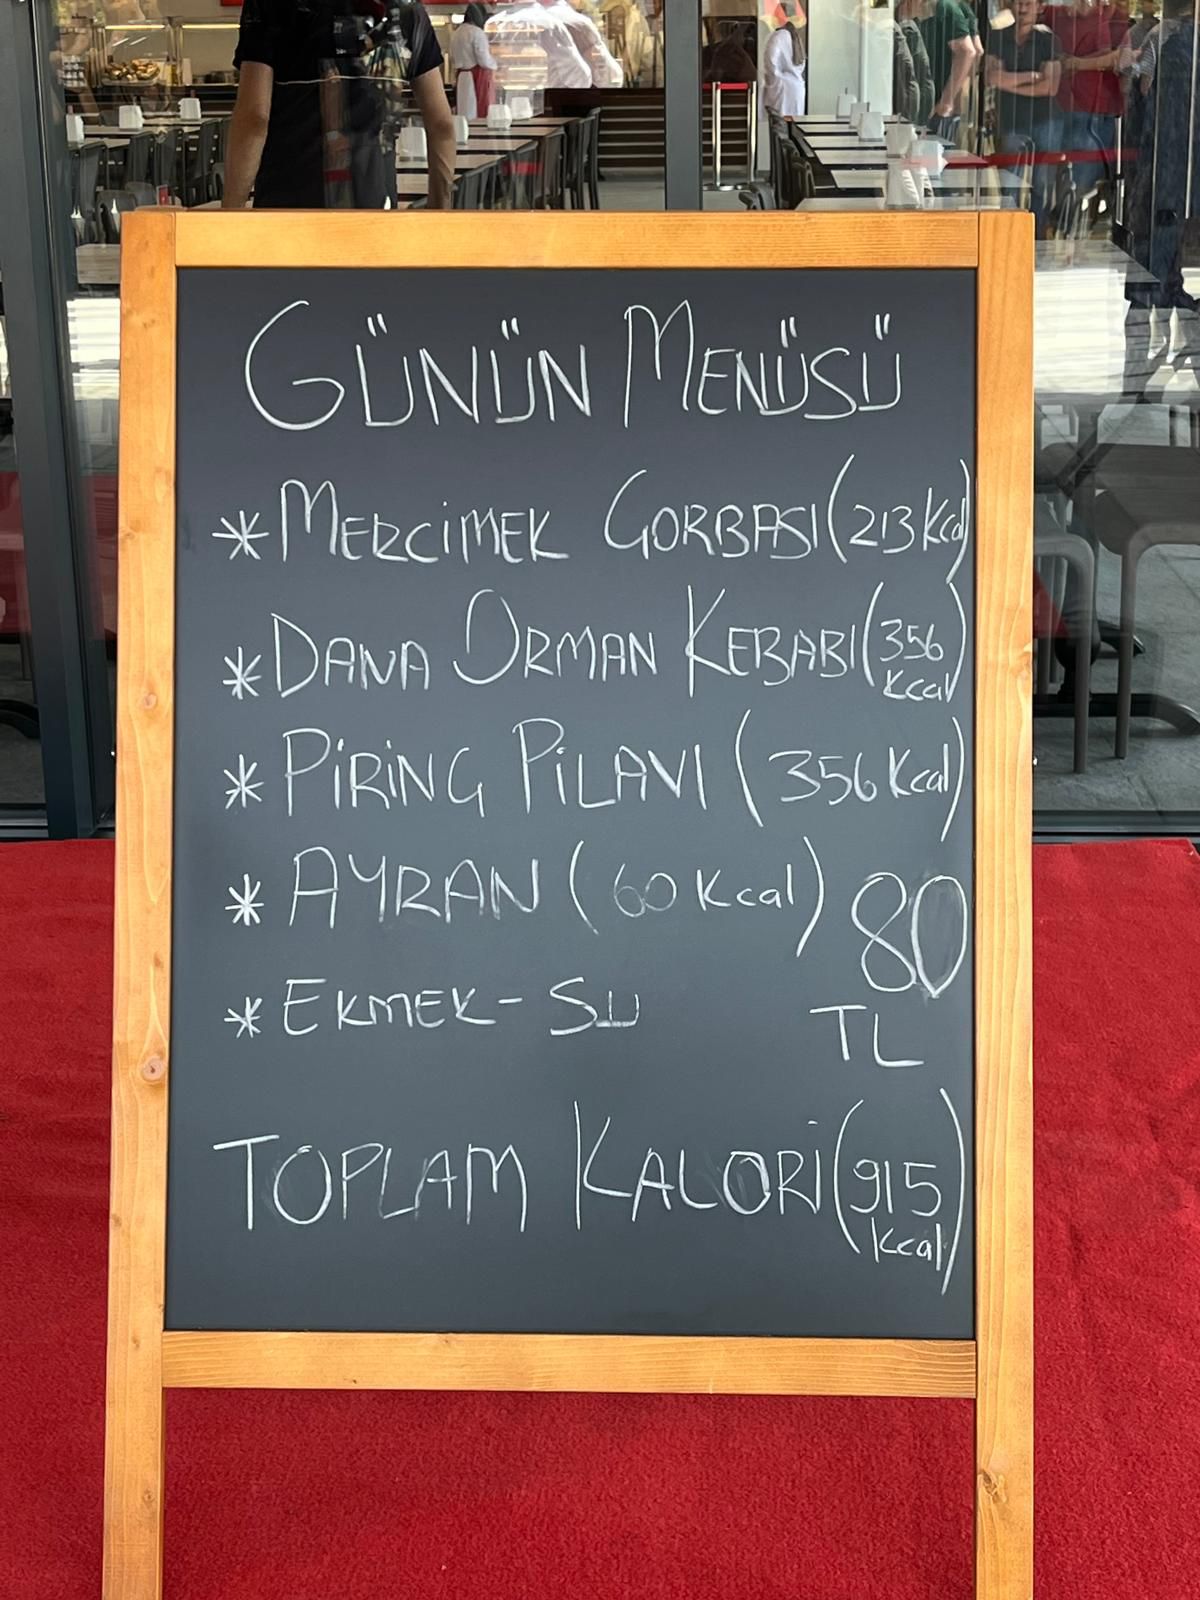 GÜNÜN MENÜSÜ
* MERCİMEK ÇORBASI (213 Kcal)
* DANA ORMAN KEBABI (356 Kcal)
* PİRİNÇ PİLAVI (356 Kcal)
* AYRAN (60 Kcal)
* EKMEK - SU
80 TL
TOPLAM KALORİ (915 Kcal)